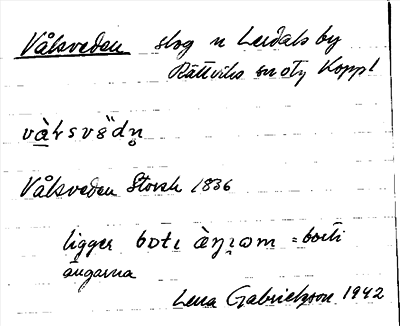 Vålsveden skog n Lerdals by
Rättviks sn o ty Koppl
vàɫsvëdn̥
Vålsveden Storsk 1836
ligger bɒtɩ àŋɩɷm = borti
ängarna
Lena Gabrielsson 1942